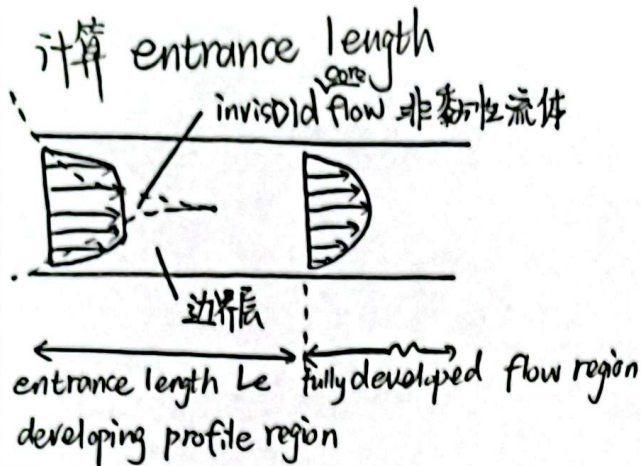 计算 entrance length
core
invisDId flow 非黏性流体
边界层
entrance length Le fully developed flow region
developing profile region